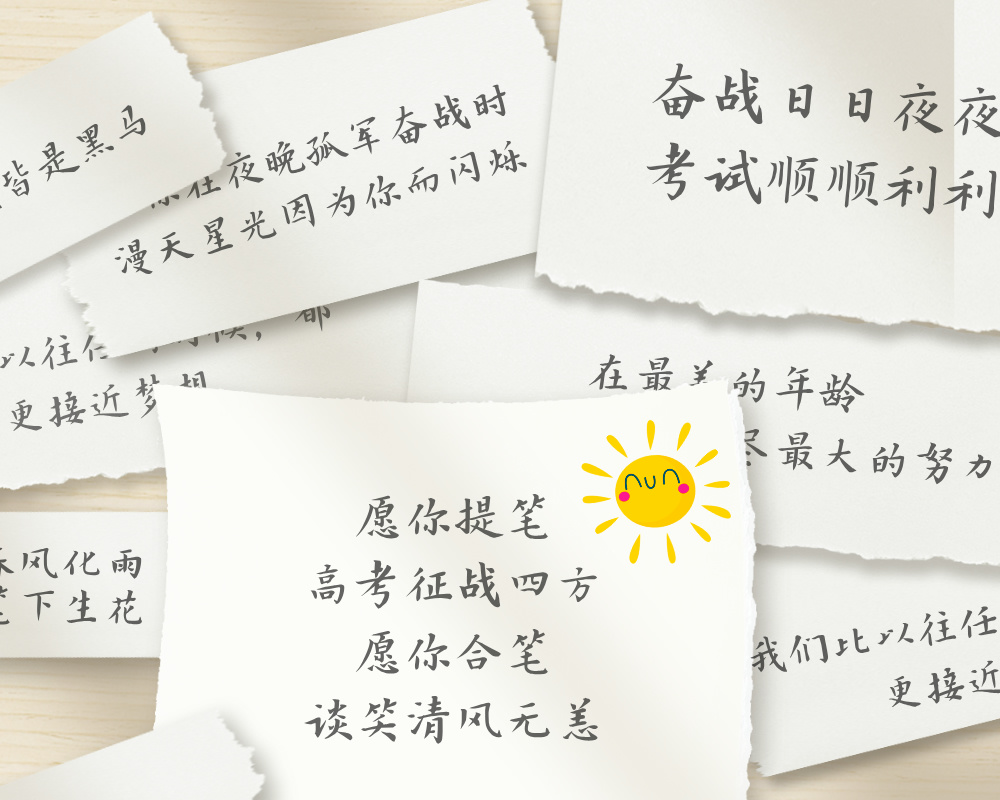 皆是黑马
你在夜晚孤军奋战时
漫天星光因为你而闪烁
奋战日日夜夜
考试顺顺利利
以往任
时候，都
更接近梦想
在最美的年龄
尽最大的努力
愿你提笔
高考征战四方
愿你合笔
谈笑清风无恙
风化雨
笔下生花
我们比以往任
更接近